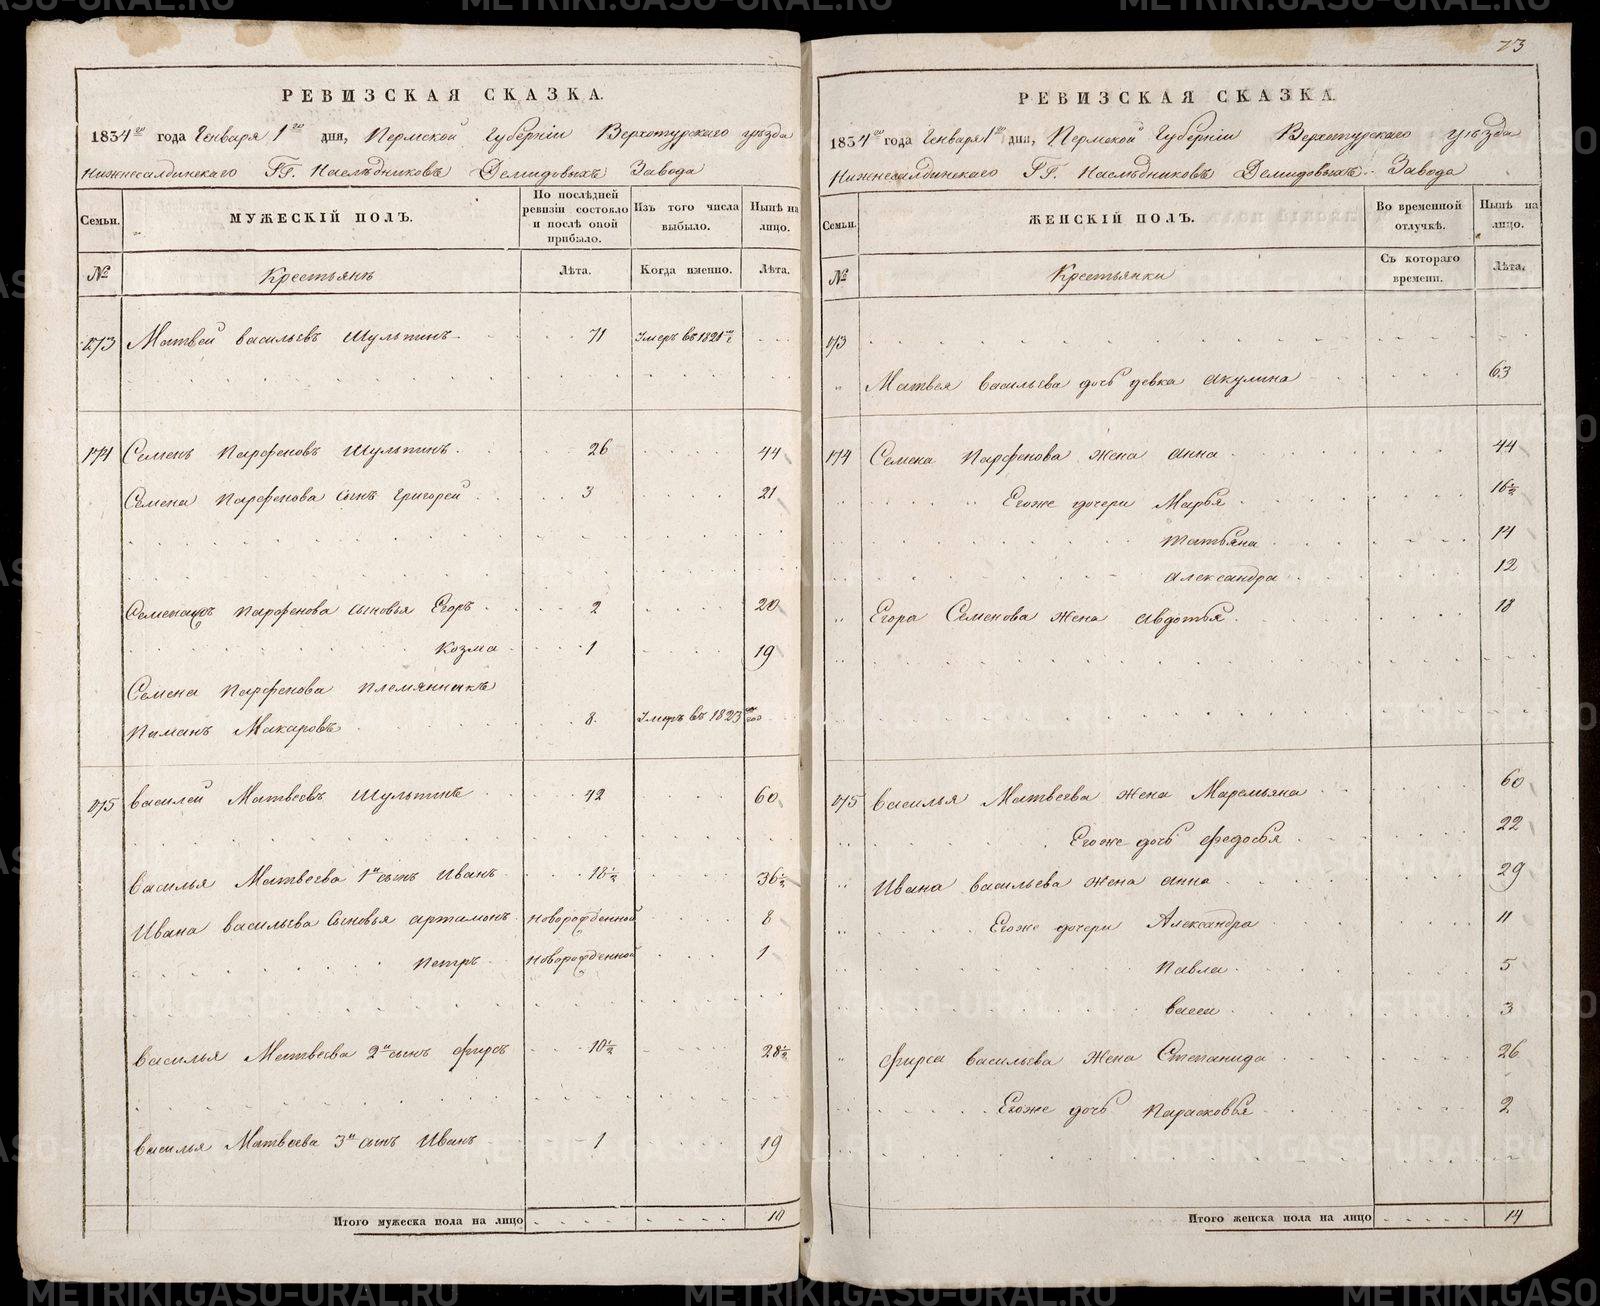 РЕВИЗСКАЯ СКАЗКА.
1834го года Генваря 1го дня, Пермской Губерніи Верхотурскаго уѣзда
Нижнесалдинскаго ГГ. Наслѣдниковъ Демидовыхъ Завода
Семьи.
МУЖЕСКІЙ ПОЛЪ.
По послѣдней ревизіи состояло и послѣ оной прибыло.
Изъ того числа выбыло.
Нынѣ на лицо.
№
Крестьянъ
Лѣта.
Когда именно.
Лѣта.
173 Матвей Васильевъ Шульпинъ 71 Умеръ въ 1821мъ г
174 Семенъ Парфеновъ Шульпинъ 26 44
Семена Парфенова сынъ Григорей 3 21
Парфенова сыновья Егоръ 2 20
Козма 1 19
Семена Парфенова племянникъ
Макаровъ 8 Умеръ въ 1823
175 Василей Матвеевъ Шульпинъ 42 60
Василья Матвеева 1й сынъ Иванъ 18½ 36½
Ивана Васильева сыновья Артамонъ Новорожденной 8
Петръ Новорожденной 1
Василья Матвеева 2й сынъ Фирсъ 10½ 28½
Василья Матвеева 3й сынъ Иванъ 1 19
Итого мужеска пола на лицо 10
73
РЕВИЗСКАЯ СКАЗКА.
1834го года Генваря 1го дня, Пермской Губерніи Верхотурскаго уѣзда
Нижнесалдинскаго ГГ. Наслѣдниковъ Демидовыхъ Завода
Семьи.
ЖЕНСКІЙ ПОЛЪ.
Во временной отлучкѣ.
Нынѣ на лицо.
№
Крестьянки
Съ котораго времени.
Лѣта.
173
Матвея Васильева дочь девка Акулина 63
174 Семена Парфенова жена Анна 44
Егоже дочери Марья 16½
Татьяна 14
Александра 12
Егора Семенова жена Авдотья 18
175 Василья Матвеева жена Маремьяна 60
Егоже дочь Федосья 22
Ивана Васильева жена Анна 29
Егоже дочери Александра 11
Павла 5
Васса 3
Фирса Васильева жена Степанида 26
Егоже дочь Парасковья 2
Итого женска пола на лицо 14
METRIKI.GASO-URAL.RU